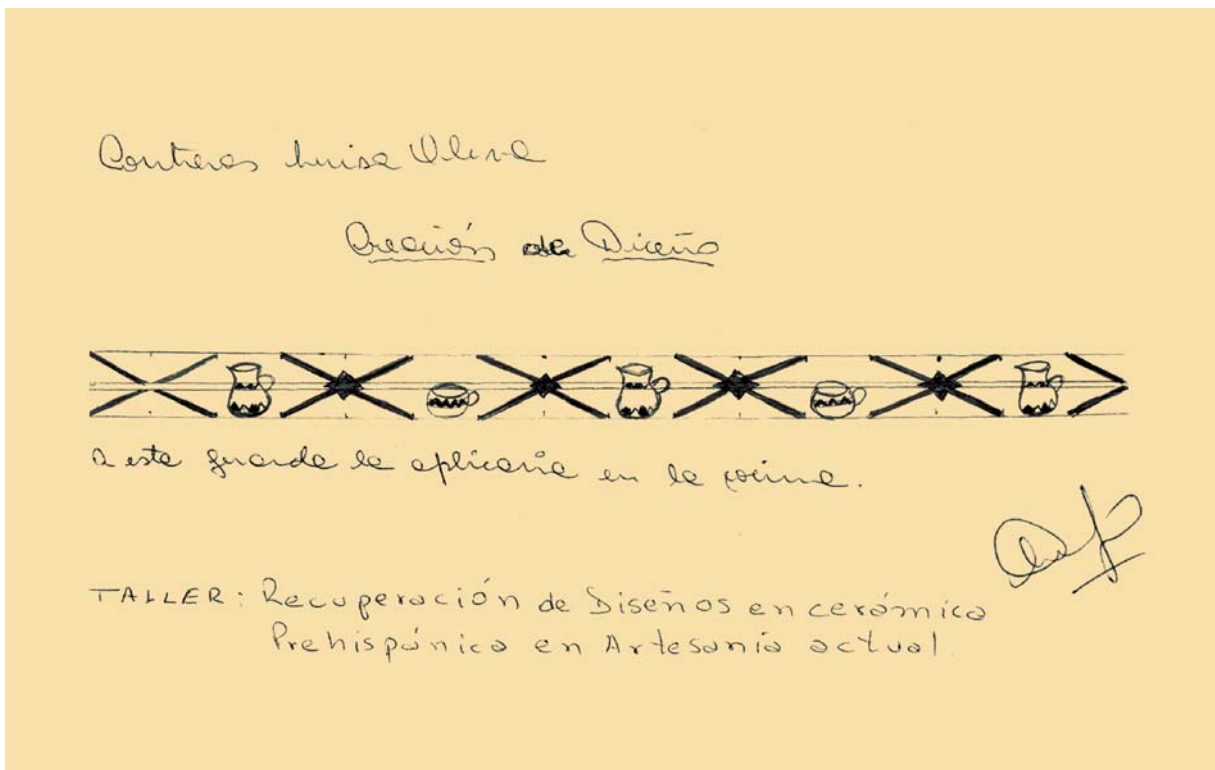 Contreras Luisa
Creación de Diceño
a esta guarda la aplicaria en la cocina.
TALLER: Recuperación de Diseños en cerámica
Prehispánica en Artesanía actual